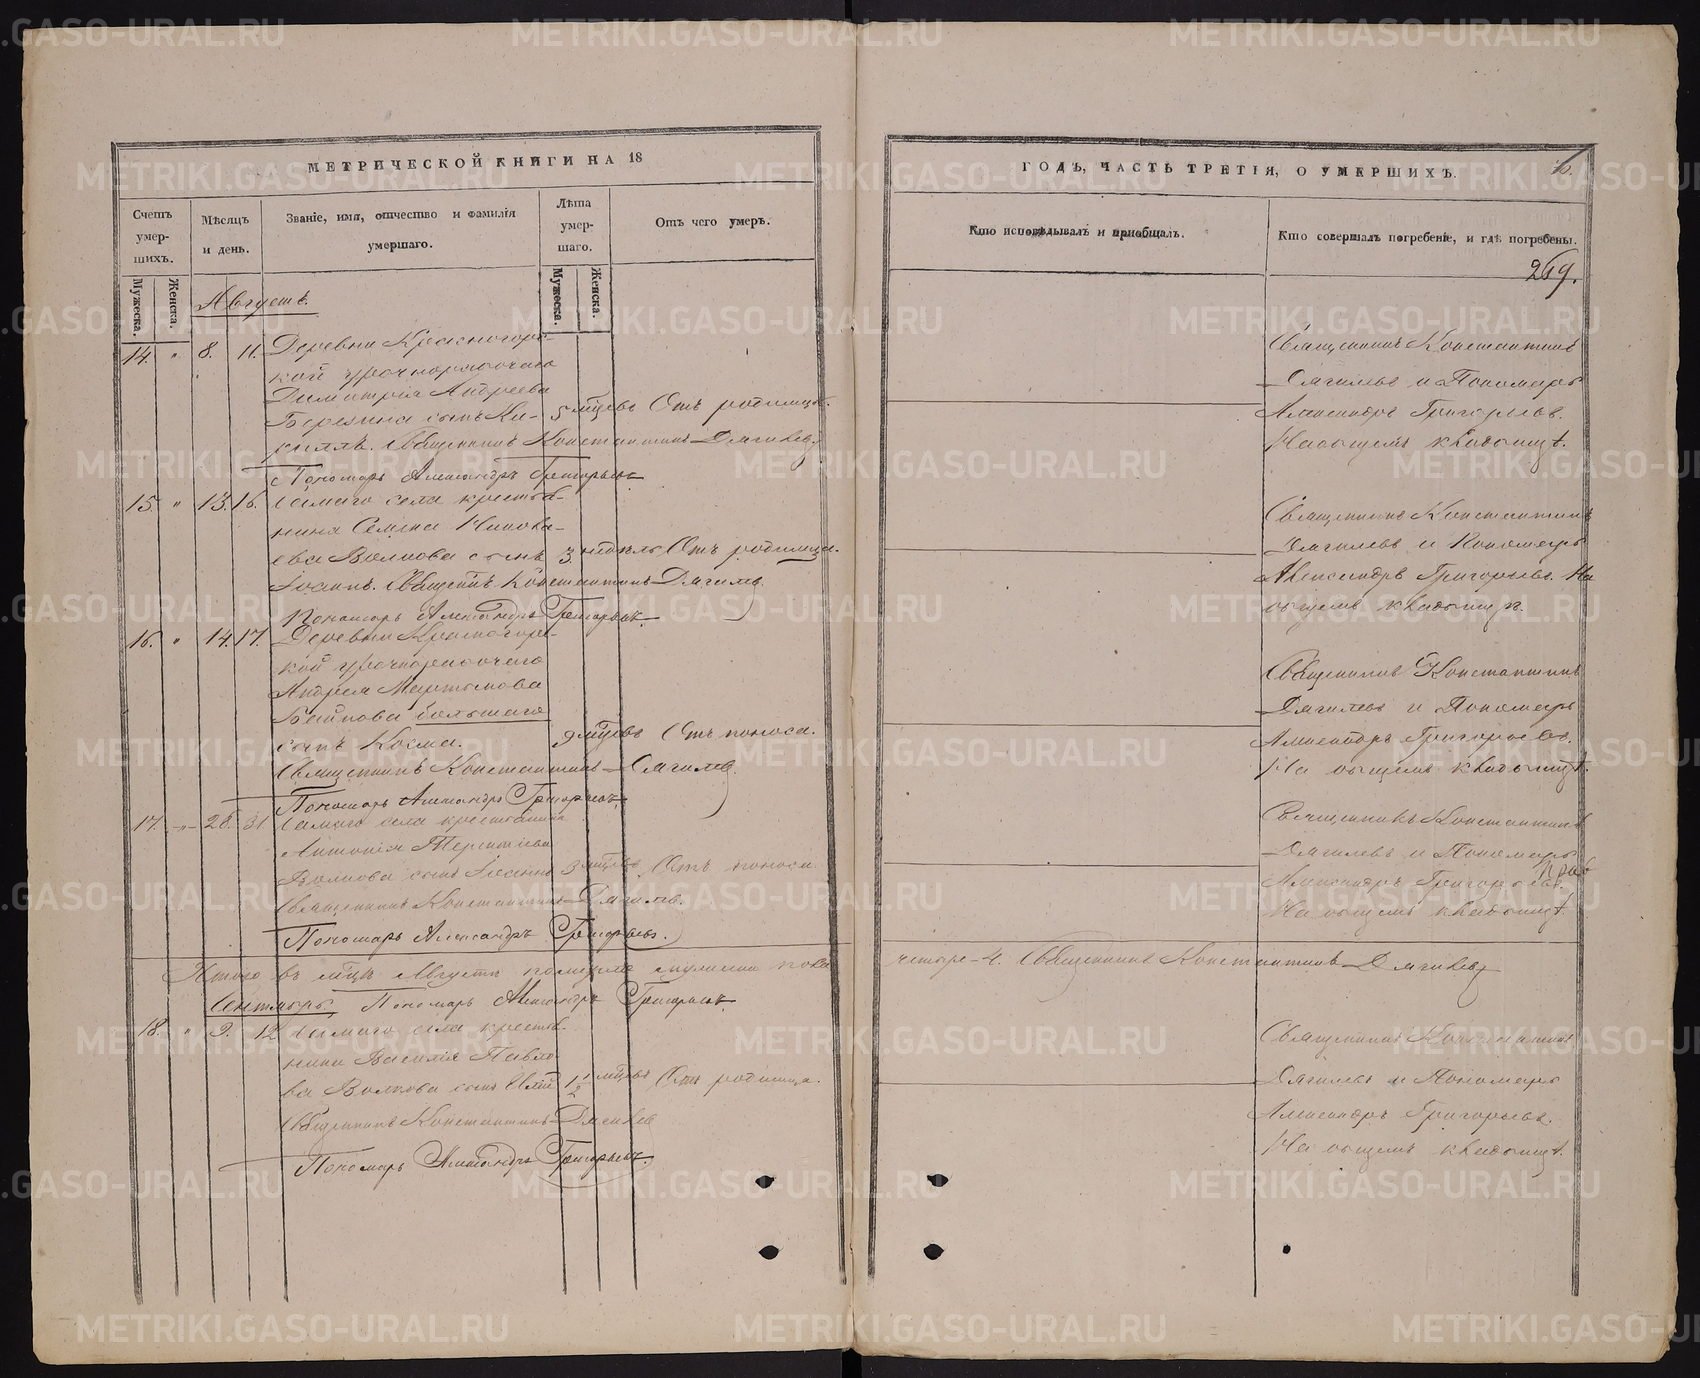 МЕТРИЧЕСКОЙ КНИГИ НА 18
Счетъ умершихъ.
Мужеска.
Женска.
Мѣсяцъ и день.
Званіе, имя, отчество и фамилія умершаго.
Лѣта умершаго.
Мужеска.
Женска.
Отъ чего умеръ.
Августъ.
14. " 8. 11. Деревни Красногорс-
кой урочнорабочаго
Димитрія Андреева
Березина сынъ Ки-
риллъ. 5 мцевъ Отъ родимца.
Священникъ Константинъ Дягилевъ
Пономарь Александръ Григорьевъ
15. " 13. 16. Самаго села крестья-
нина Семена
Волкова сынъ 3 недѣль Отъ родимца.
Іоаннъ. Священникъ Константинъ Дягилевъ
Пономарь Александръ Григорьевъ.
16. " 14. 17. Деревни Красногорс-
кой урочнорабочаго
Андрея Мартынова
большаго
сынъ Косма. 9 мцевъ Отъ поноса.
Священникъ Константинъ Дягилевъ.
Пономарь Александръ Григорьевъ
17. " 28. 31 Самаго села крестьянина
Антонія Терентіева
Волкова сынъ 3 мцевъ Отъ поноса
Священникъ Константинъ Дягилевъ.
Пономарь Александръ Григорьевъ.
Итого въ мцѣ Августѣ померло мужеска пола
Сентябрь. Пономарь Александръ Григорьевъ.
18. " 9. 12 Самаго села кресть-
нина Василія Павло-
ва Волкова сынъ 1 1/2 мцевъ Отъ родимца.
Священникъ Константинъ Дягилев
Пономарь Александръ Григорьевъ.
ГОДЪ, ЧАСТЬ ТРЕТІЯ, О УМЕРШИХЪ.
Кто исповѣдывалъ и пріобщалъ.
Кто совершалъ погребеніе, и гдѣ погребены.
269.
Священникъ Константинъ
Дягилевъ и Пономарь
Александръ Григорьевъ.
На общемъ кладбищѣ.
Священникъ Константинъ
Дягилевъ и Пономарь
Александръ Григорьевъ. На
общемъ кладбищѣ.
Священникъ Константинъ
Дягилевъ и Пономарь
Александръ Григорьевъ.
На общемъ кладбищѣ.
Священникъ Константинъ
Дягилевъ и Пономарь
Александръ Григорьевъ.
На общемъ кладбищѣ.
четыре - 4. Священникъ Константинъ Дягилевъ
Священникъ Константинъ
Дягилевъ и Пономарь
Александръ Григорьевъ.
На общемъ кладбищѣ.
METRIKI.GASO-URAL.RU